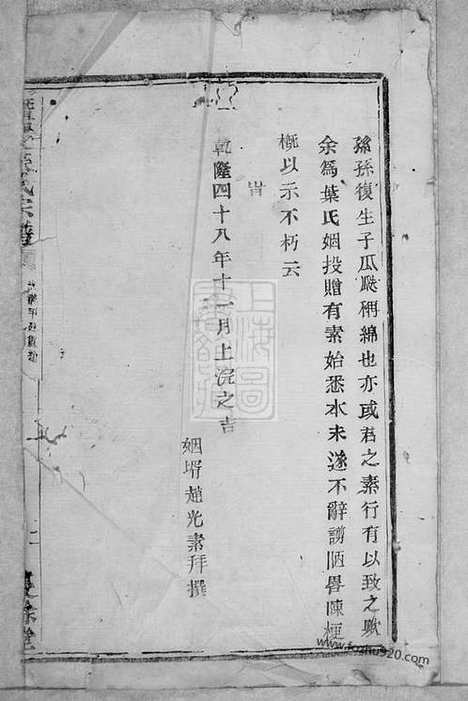 孫孫復生子瓜瓞稱綿也亦或君之素行有以致之歟
余為葉氏姻投贈有素始悉本末遂不辭謭陋畧陳梗
概以示不朽云
旹
乾隆四十八年十一月上浣之吉
姻壻趙光素拜撰
氏宗譜
二
慶餘堂
上海圖
www.fozhu920.com